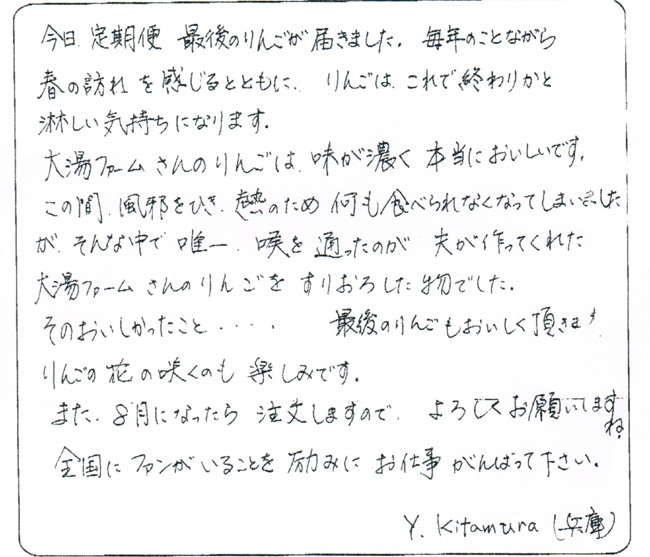 今日、定期便 最後のりんごが届きました。毎年のことながら
春の訪れを感じるとともに、りんごは、これで終わりかと
淋しい気持ちになります。
大湯ファームさんのりんごは、味が濃く 本当においしいです。
この間、風邪をひき、熱のため 何も食べられなくなってしまいました
が、そんな中で 唯一、喉を通ったのが 夫が作ってくれた
大湯ファームさんのりんごをすりおろした物でした。
そのおいしかったこと・・・・ 最後のりんごもおいしく頂きます
りんごの花の咲くのも楽しみです。
また、8月になったら 注文しますので、よろしくお願いします
ね。
全国にファンがいることを励みに お仕事 がんばって下さい。
Y. Kitamura (兵庫)